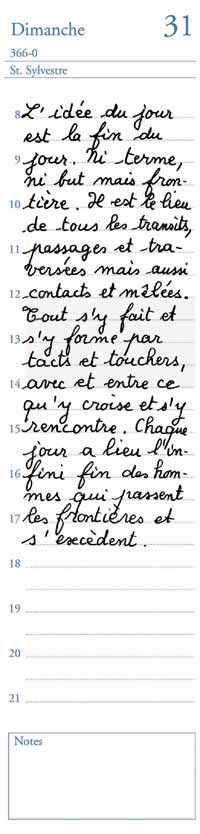 Dimanche 31
366-0
St. Sylvestre
8 L'idée du jour
est la fin du
9 jour. Ni terme,
ni but mais fron-
10 tière. Il est le lieu
de tous les transits,
11 passages et tra-
versées mais aussi
12 contacts et mêlées.
Tout s'y fait et
13 s'y forme par
tacts et touchers,
14 avec et entre ce
qu'y croise et s'y
15 rencontre. Chaque
jour a lieu l'in-
16 fini fin des hom-
mes qui passent
17 les frontières et
s'excèdent.
18
19
20
21
Notes